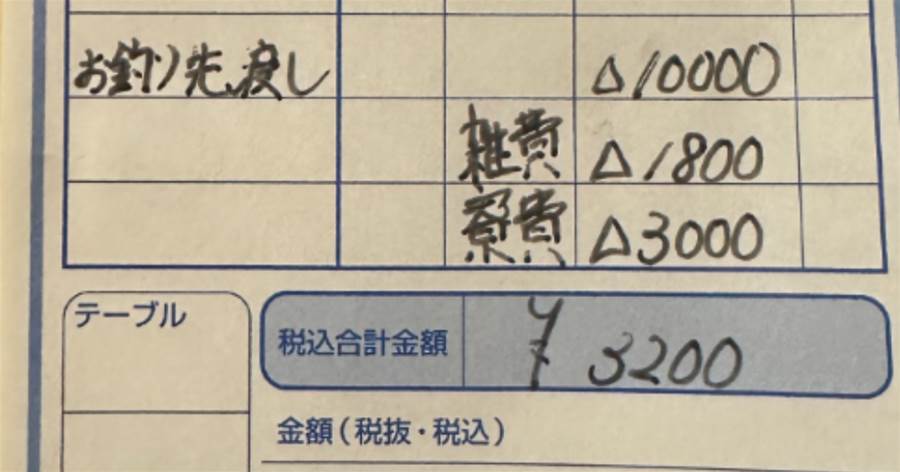 お釣り先渡し △10000
雑費 △1800
寮費 △3000
テーブル
税込合計金額 ¥3200
金額(税抜・税込)